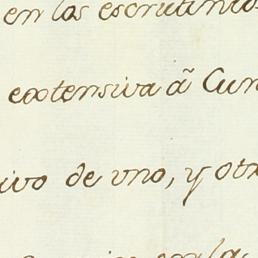 en las escrutinio
extensiva ã Cur
ivo de uno, y otr